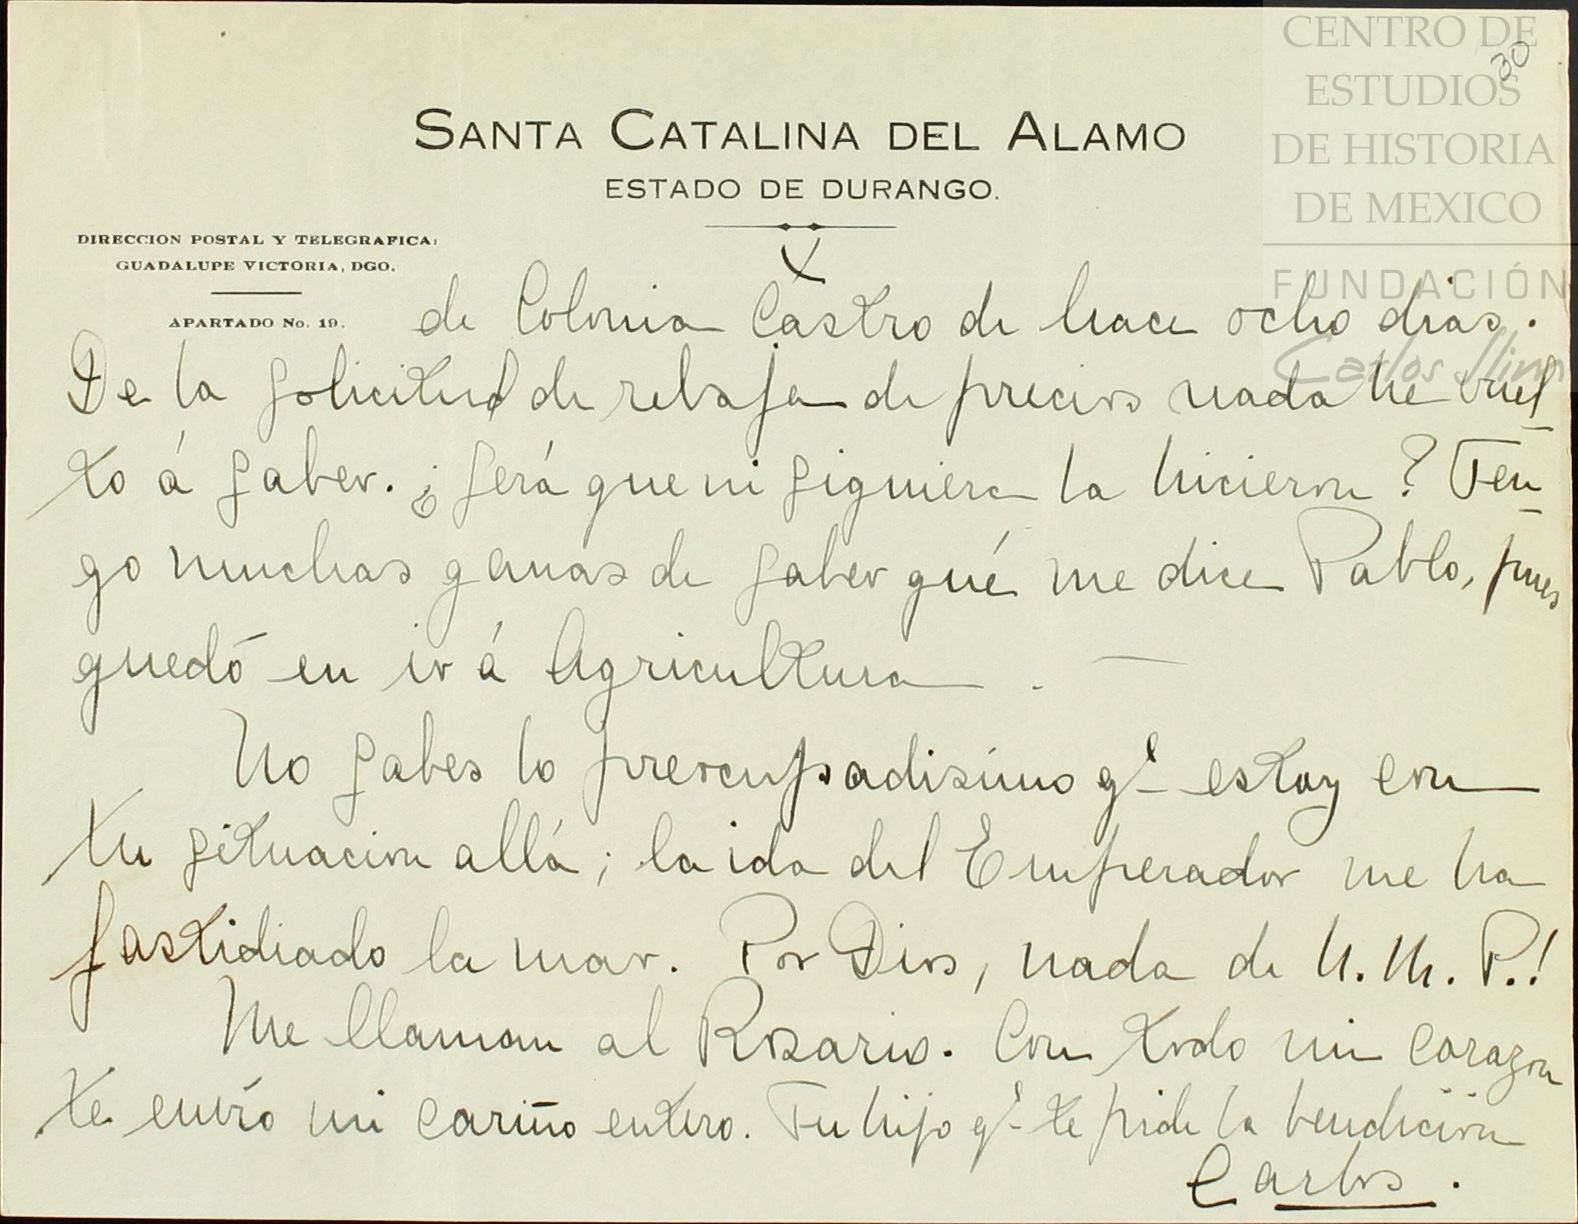 CENTRO DE
ESTUDIOS
DE HISTORIA
DE MEXICO
FUNDACIÓN
Carlos Slim
30
SANTA CATALINA DEL ALAMO
ESTADO DE DURANGO.
DIRECCION POSTAL Y TELEGRAFICA:
GUADALUPE VICTORIA, DGO.
APARTADO No. 19.
X
de Colonia Castro de hace ocho dias.
De la solicitud de rebaja de precios nada he vuel
to á saber. ¿Será que ni siquiera la hicieron? Ten
go muchas ganas de saber qué me dice Pablo, pues
quedó en ir á Agricultura. —
No sabes lo preocupadisímo q' estoy con
tu situacion allá; la ida del Emperador me ha
fastidiado la mar. Por Dios, nada de U. M. P.!
Me llaman al Rosario. Con todo mi corazon
te envío mi cariño entero. Tu hijo q' te pide la bendicion
Carlos.